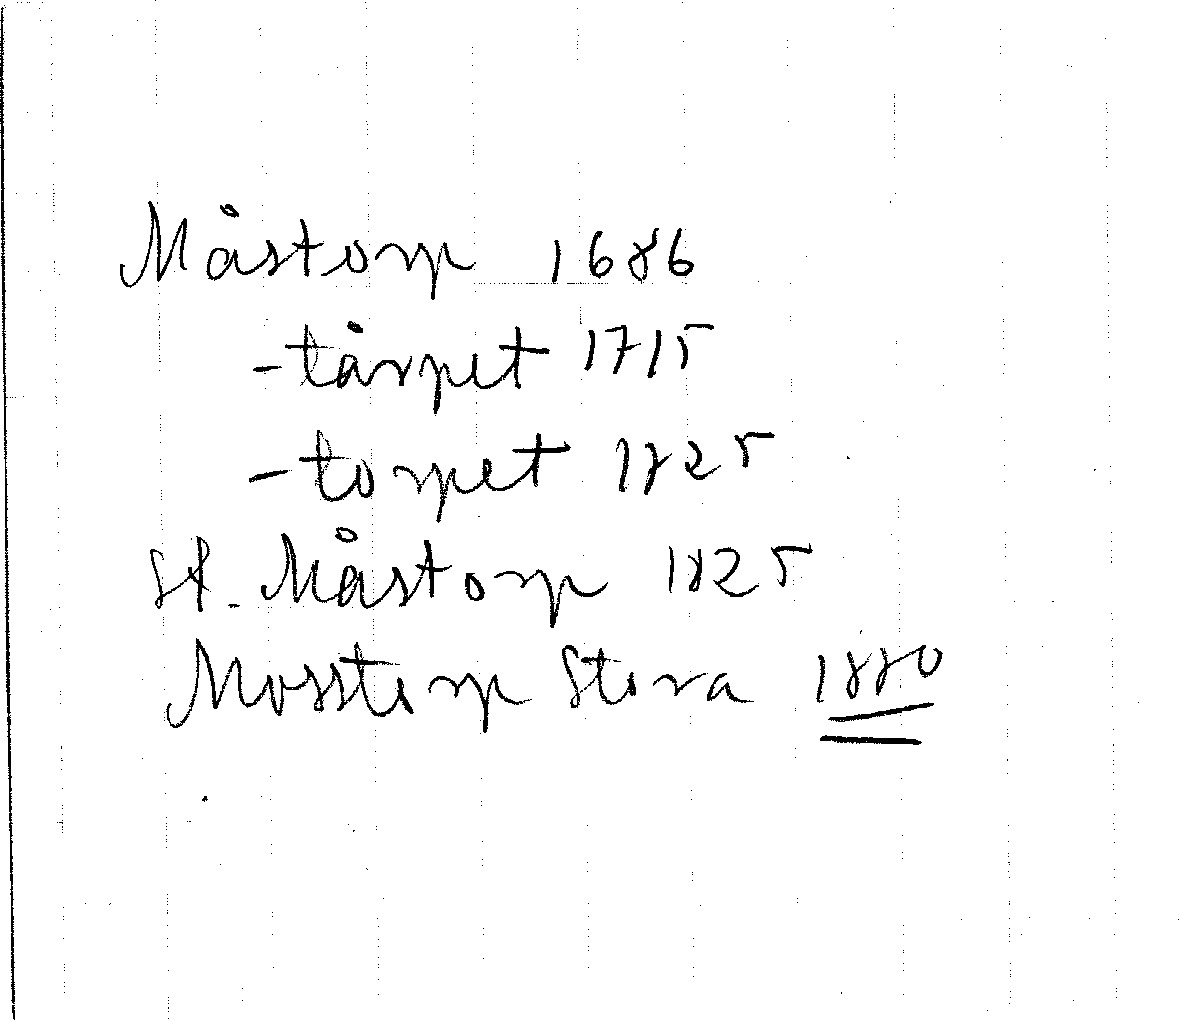 Måstorp 1686
-tårpet 1715
-torpet 1825
St. Måstorp 1825
Mosstorp Stora 1880